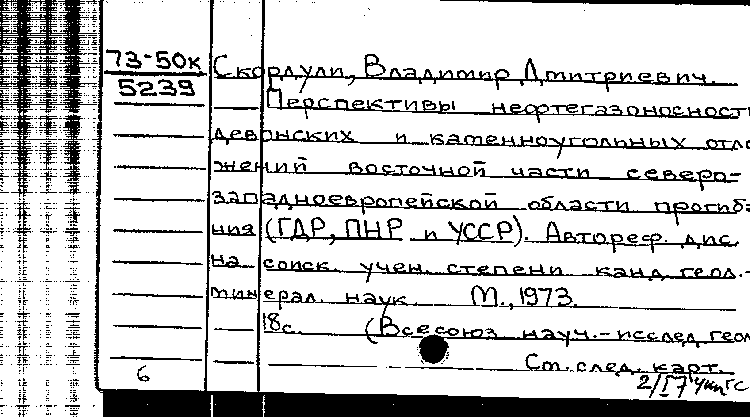 73-50к
5239
Скордули, Владимир Дмитриевич.
Перспективы нефтегазоносност
девонских и каменноугольных отло
жений восточной части северо-
западноевропейской области прогиба
ния (ГДР, ПНР и УССР). Автореф. дис.
на соиск. учен. степени канд. геол.-
минерал. наук. М., 1973.
18с. (Всесоюз. науч.-исслед. геол
См. след. карт.
6